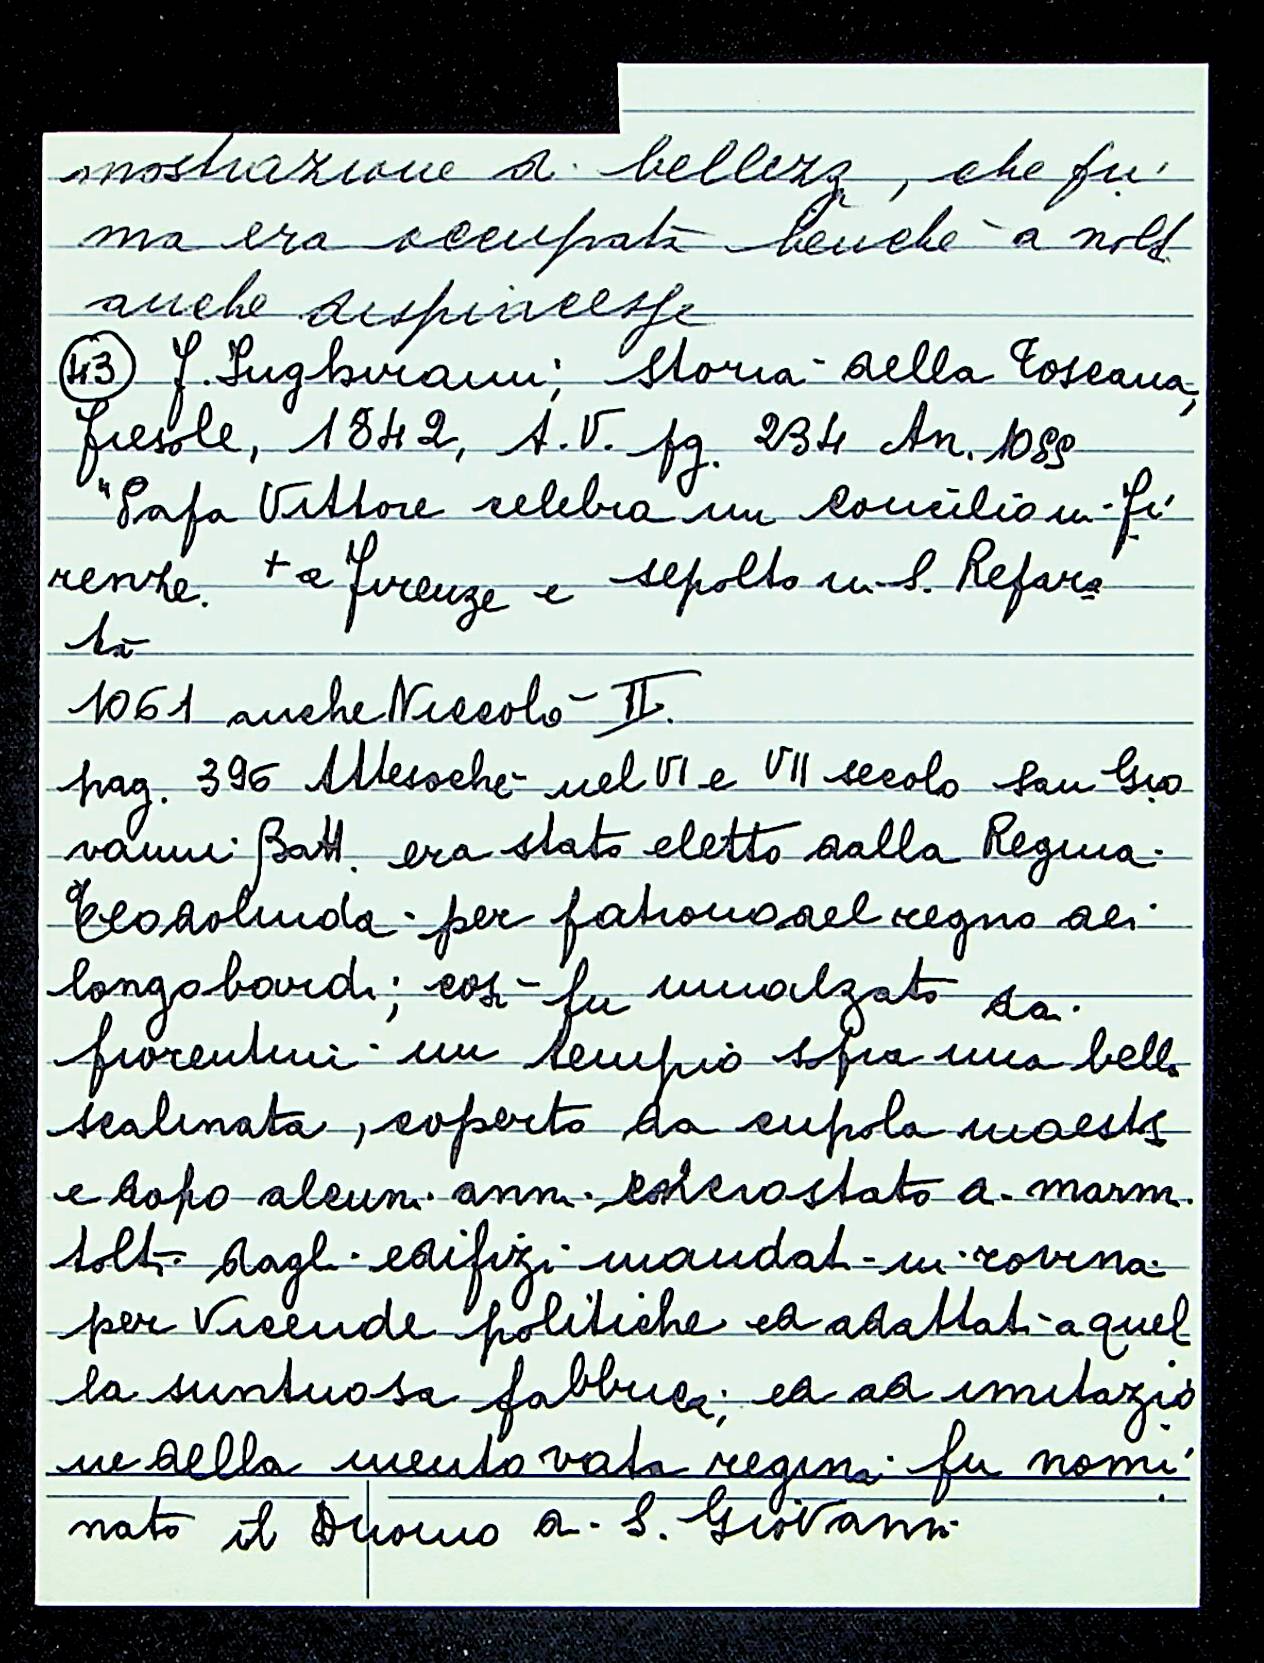 mostrazione di bellezza, che pri
ma era occupata benchè a molti
anche dispiacesse
(43) F. Inghirami; Storia della Toscana,
Fiesole, 1842, t. V. pg. 234 An. 1055
"Papa Vittore celebra un concilio in Fi
renze. + a Firenze e sepolto in S. Repara
ta
1061 anche Niccolò II.
pag. 396 Attesochè nel VI e VII secolo San Gio
vanni Batt. era stato eletto dalla Regina
Teodolinda per patrono del regno dei
longobardi; così fu innalzato da
fiorentini un tempio sopra una bella
scalinata, coperto da cupola maestosa
e dopo alcuni anni incrostato di marmi
tolti dagli edifizi mandati in rovina
per vicende politiche ed adattati a quel
la suntuosa fabbrica; ed ad imitazio
ne della mentovata regina fu nomi
nato il Duomo di S. Giovanni